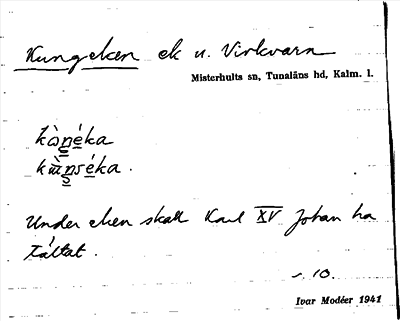 Kungeken ek u. Virkvarn
Misterhults sn, Tunaläns hd, Kalm. l.
Under eken skall Karl XV Johan ha
tältat.
10.
Ivar Modéer 1941